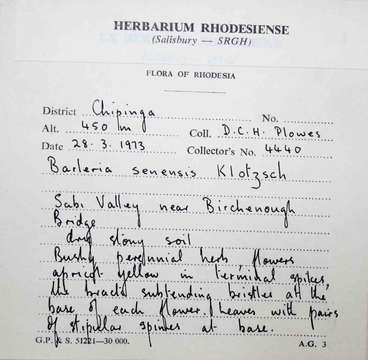 HERBARIUM RHODESIENSE
(Salisbury — SRGH)
FLORA OF RHODESIA
District Chipinga No.
Alt. 450 m Coll. D.C.H. Plowes
Date 28.3.1973 Collector's No. 4440
Barleria senensis Klotzsch
Sabi Valley near Birchenough
Bridge
dry stony soil
Bushy perennial herb, flowers
apricot yellow in terminal spikes,
the bracts subtending bristles at the
base of each flower. Leaves with pairs
of stipular spines at base.
G.P. & S. 51221—30 000. A.G. 3